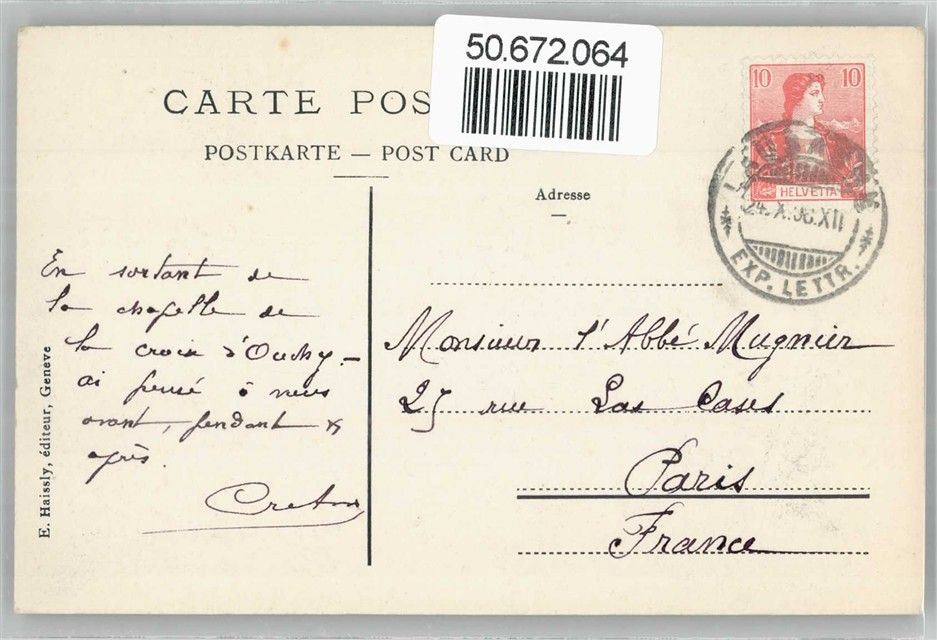 50.672.064
CARTE POS
POSTKARTE — POST CARD
Adresse
10 10
HELVETIA
24.X.08.XII
EXP. LETTR.
En sortant de
la chapelle de
la croix d'Ouchy –
ai pensé à nous
avant, pendant &
après.
Monsieur l'Abbé Mugnier
25 rue Las Cases
Paris
France
E. Haissly, éditeur, Genève